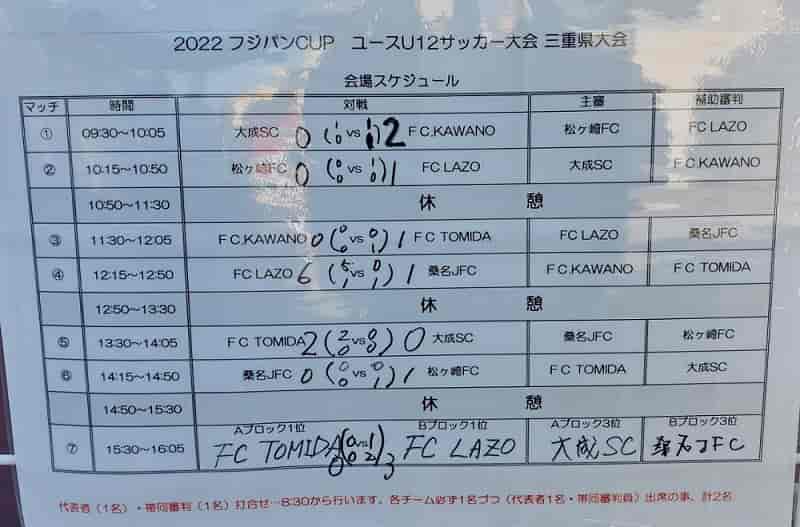 2022 フジパンCUP　ユースU12サッカー大会 三重県大会
会場スケジュール
マッチ 時間 対戦 主審 補助審判
① 09:30～10:05 大成SC 0 ( vs 1 0 ) 2 ＦC.KAWANO 松ヶ崎FC FC LAZO
② 10:15～10:50 松ヶ崎FC 0 ( 0 0 vs 1 0 ) 1 FC LAZO 大成SC F C.KAWANO
10:50～11:30 休　憩
③ 11:30～12:05 F C.KAWANO 0 ( 0 0 vs 0 1 ) 1 F C TOMIDA FC LAZO 桑名JFC
④ 12:15～12:50 FC LAZO 6 ( 5 1 vs 0 1 ) 1 桑名JFC F C.KAWANO F C TOMIDA
12:50～13:30 休　憩
⑤ 13:30～14:05 F C TOMIDA 2 ( 2 0 vs 0 0 ) 0 大成SC 桑名JFC 松ヶ崎FC
⑥ 14:15～14:50 桑名JFC 0 ( 0 0 vs 0 1 ) 1 松ヶ崎FC F C TOMIDA 大成SC
14:50～15:30 休　憩
Aブロック1位 Bブロック1位 Aブロック3位 Bブロック3位
⑦ 15:30～16:05 FC TOMIDA 0 ( 0 0 vs 1 2 ) 3 FC LAZO 大成SC 桑名JFC
代表者（1名）・帯同審判（1名）打合せ…8:30から行います。各チーム必ず1名づつ（代表者1名・帯同審判員）出席の事、計2名